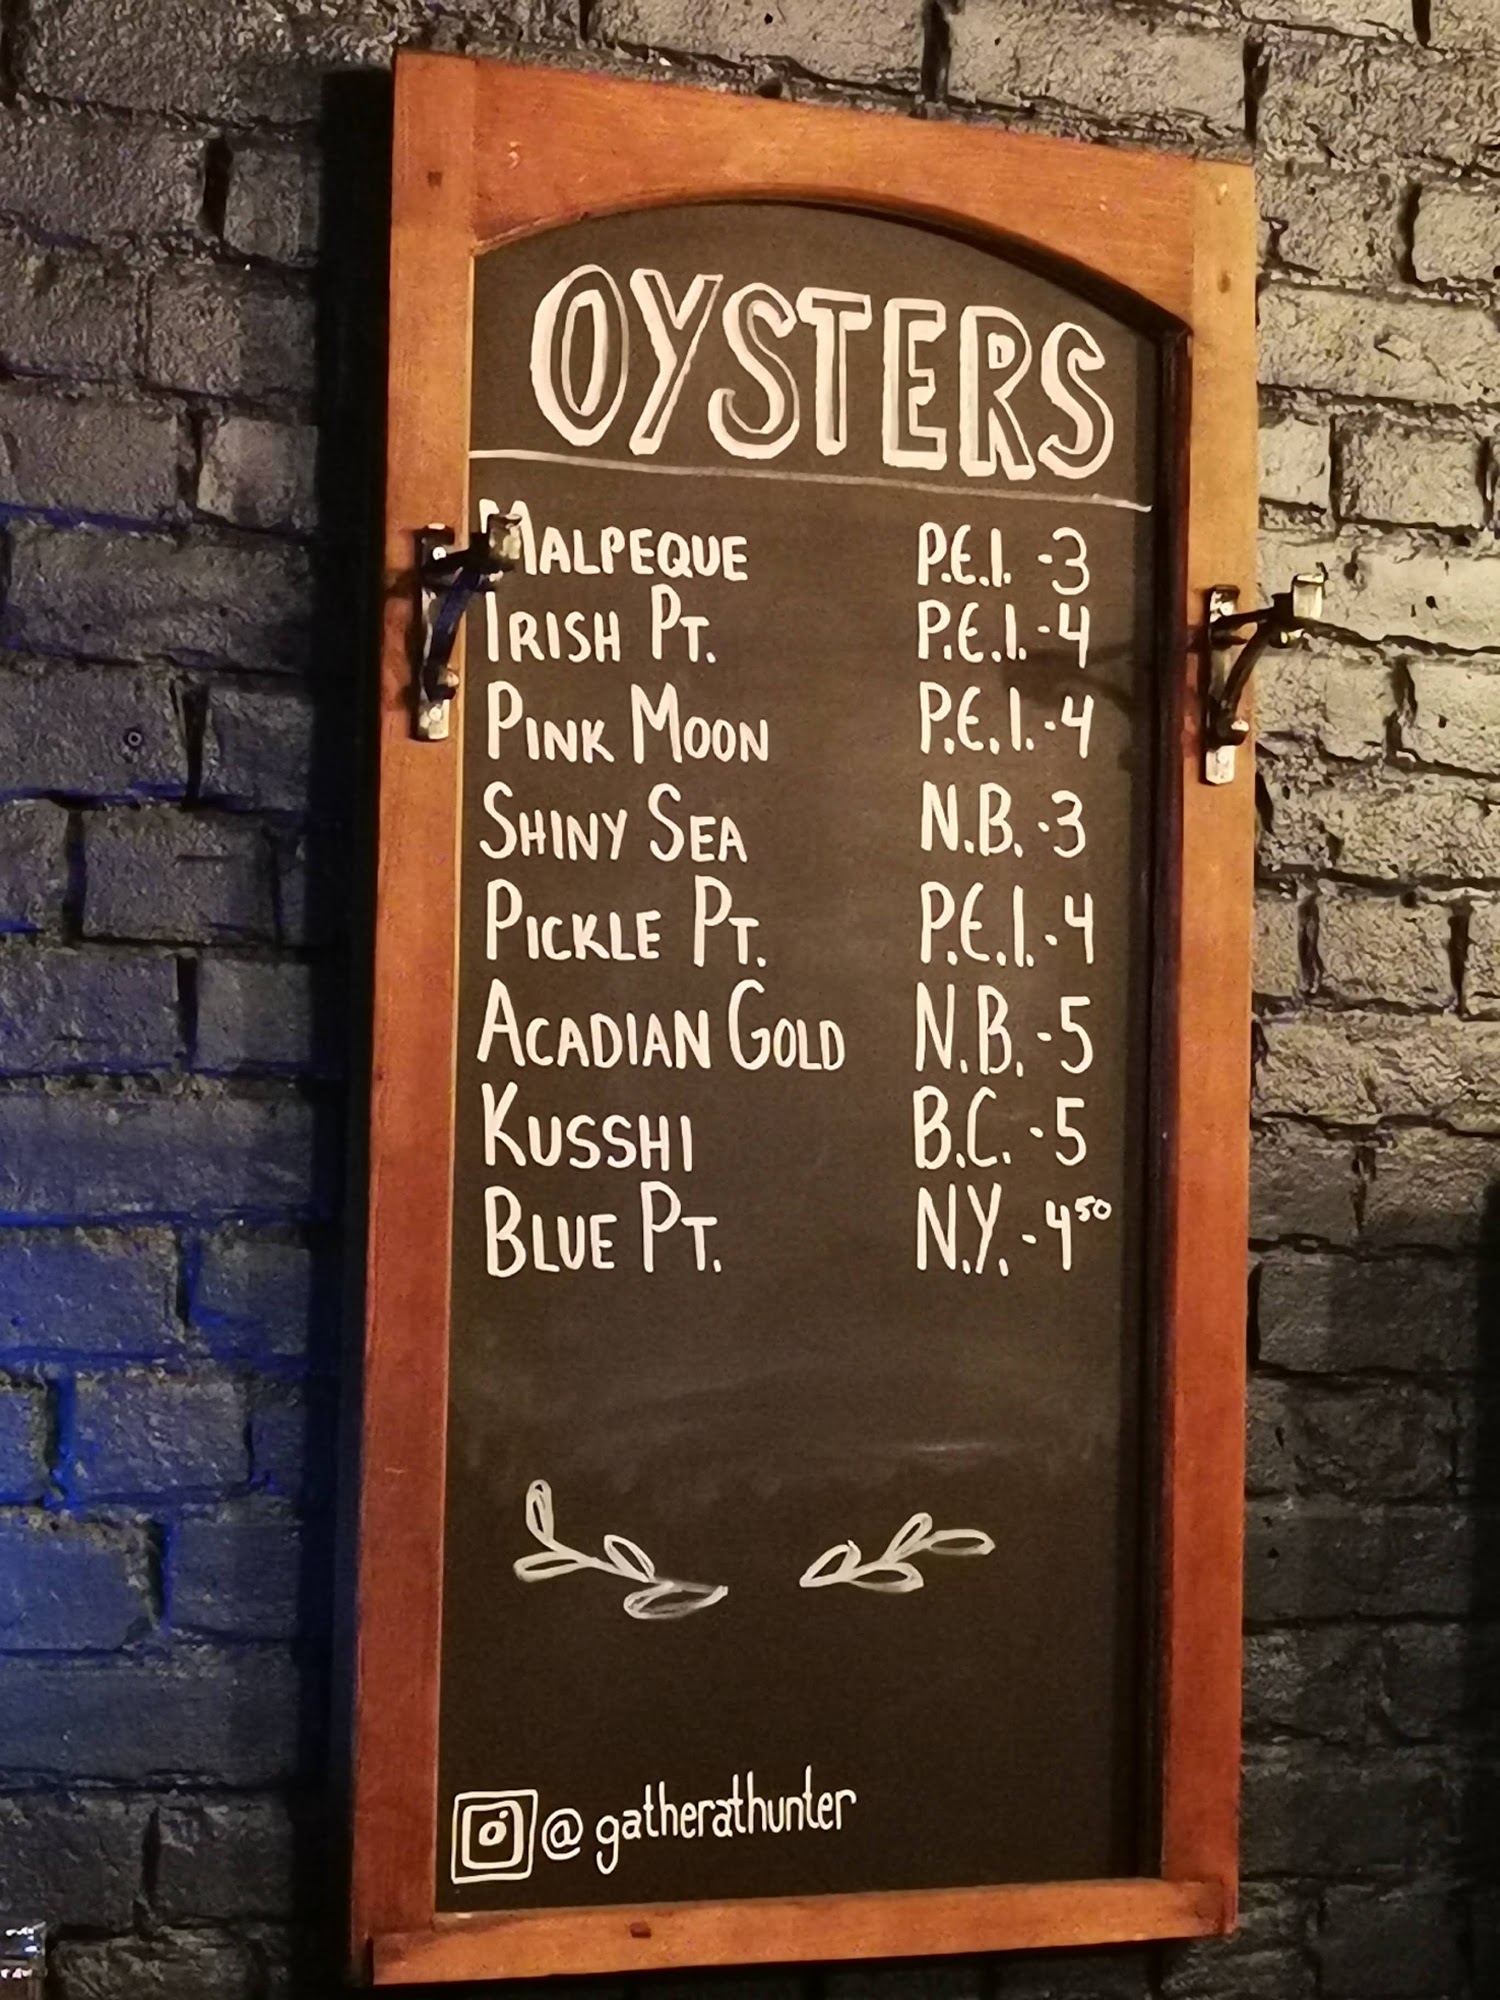 OYSTERS
MALPEQUE P.E.I. -3
IRISH PT. P.E.I. -4
PINK MOON P.E.I. -4
SHINY SEA N.B. -3
PICKLE PT. P.E.I. -4
ACADIAN GOLD N.B. -5
KUSSHI B.C. -5
BLUE PT. N.Y. -4⁵⁰
@gatherathunter